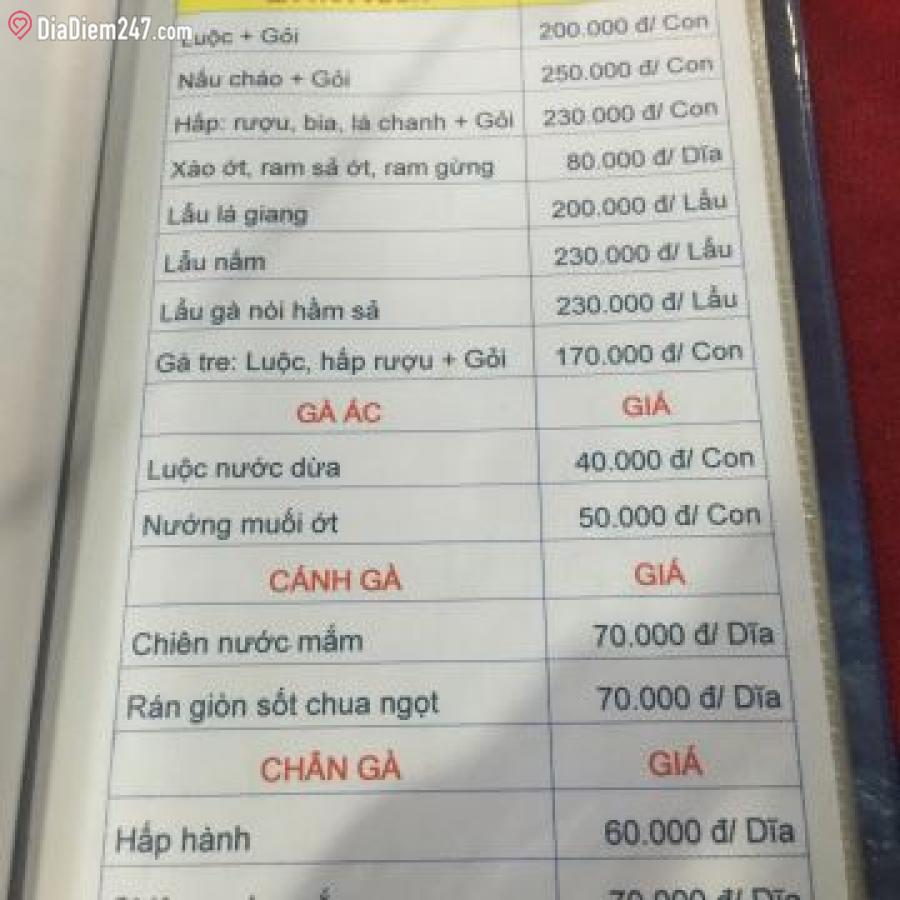 DiaDiem247.com
Luộc + Gỏi 200.000 đ/ Con
Nấu cháo + Gỏi 250.000 đ/ Con
Hấp: rượu, bia, lá chanh + Gỏi 230.000 đ/ Con
Xào ớt, ram sả ớt, ram gừng 80.000 đ/ Dĩa
Lẩu lá giang 200.000 đ/ Lẩu
Lẩu nấm 230.000 đ/ Lẩu
Lẩu gà nòi hầm sả 230.000 đ/ Lẩu
Gà tre: Luộc, hấp rượu + Gỏi 170.000 đ/ Con
GÀ ÁC GIÁ
Luộc nước dừa 40.000 đ/ Con
Nướng muối ớt 50.000 đ/ Con
CÁNH GÀ GIÁ
Chiên nước mắm 70.000 đ/ Dĩa
Rán giòn sốt chua ngọt 70.000 đ/ Dĩa
CHÂN GÀ GIÁ
Hấp hành 60.000 đ/ Dĩa
70.000 đ/ Dĩa